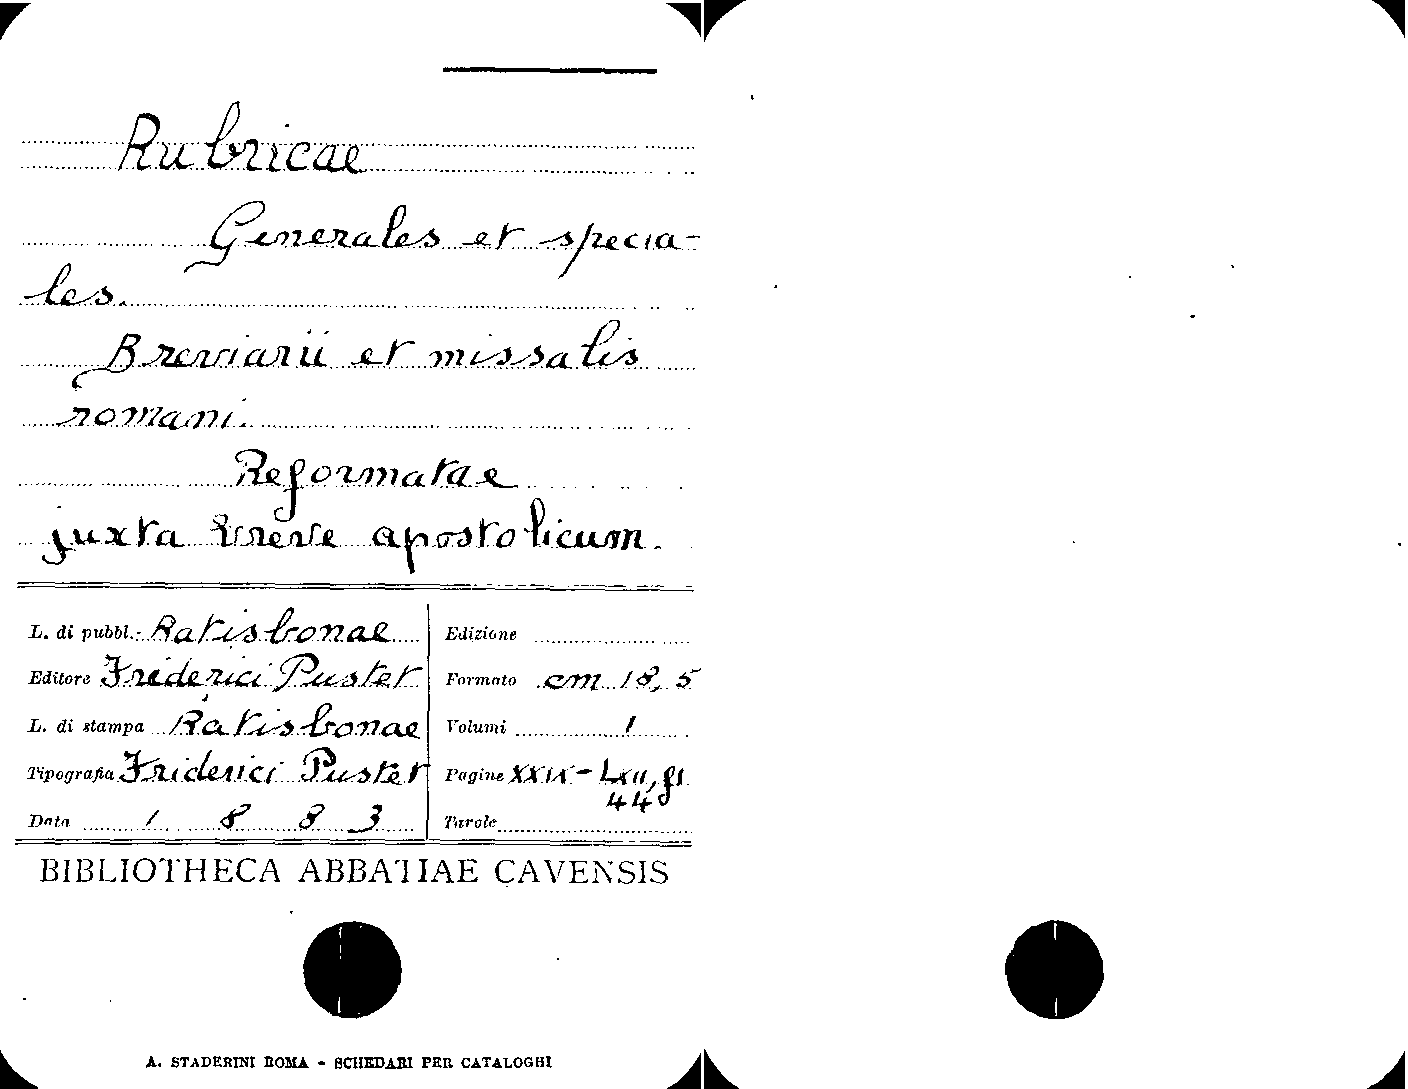 Rubricae
Generales et specia-
les.
Breviarii et missalis
romani.
Reformatae
juxta Breve apostolicum.
L. di pubbl. Ratisbonae
Editore Friderici Pustet
L. di stampa Ratisbonae
Tipografia Friderici Pustet
Data 1883
Edizione
Formato cm 18,5
Volumi 1
Pagine XXIX-
448
Parole
BIBLIOTHECA ABBATIAE CAVENSIS
A. STADERINI ROMA - SCHEDARI PER CATALOGHI